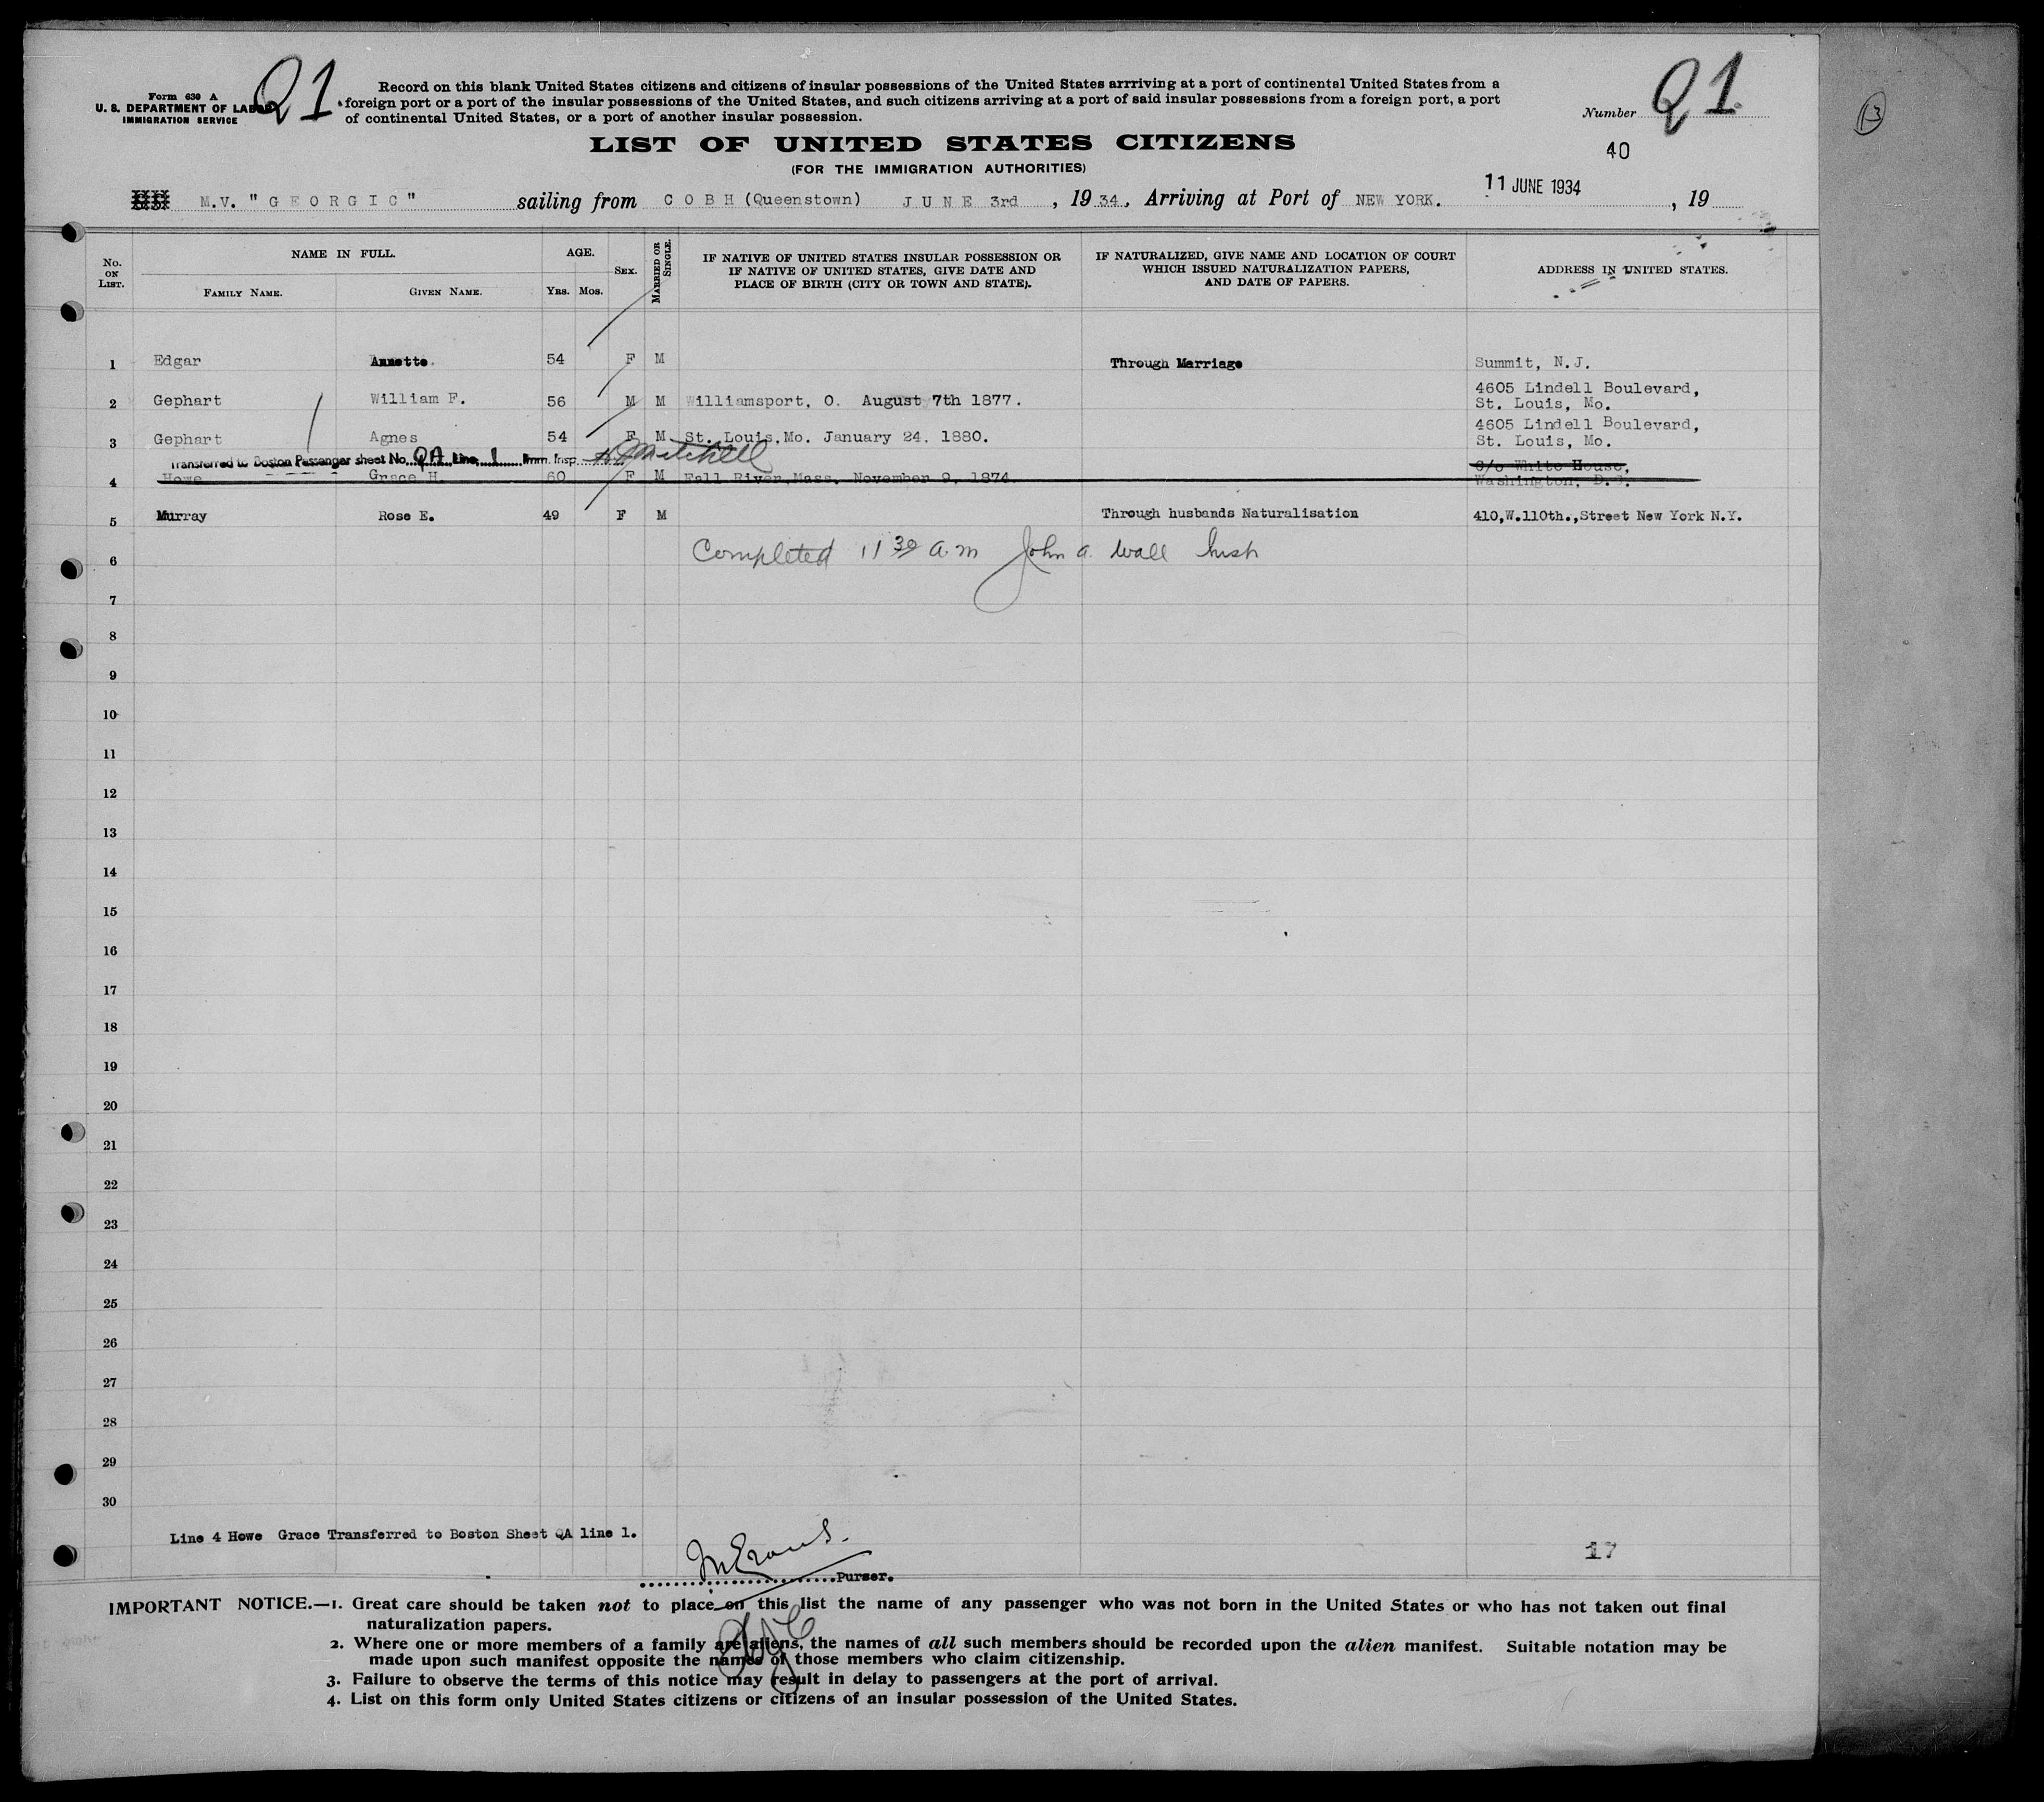 Form 630 A
U. S. DEPARTMENT OF LABOR
IMMIGRATION SERVICE
Q1
Record on this blank United States citizens and citizens of insular possessions of the United States arrriving at a port of continental United States from a
foreign port or a port of the insular possessions of the United States, and such citizens arriving at a port of said insular possessions from a foreign port, a port
of continental United States, or a port of another insular possession.
Number Q1
13
40
LIST OF UNITED STATES CITIZENS
(FOR THE IMMIGRATION AUTHORITIES)
M.V. "GEORGIC" sailing from COBH (Queenstown) JUNE 3rd , 19 34, Arriving at Port of NEW YORK. 11 JUNE 1934 , 19
No. ON LIST. NAME IN FULL. FAMILY NAME. GIVEN NAME. AGE. YRS. MOS. SEX. MARRIED OR SINGLE. IF NATIVE OF UNITED STATES INSULAR POSSESSION OR IF NATIVE OF UNITED STATES, GIVE DATE AND PLACE OF BIRTH (CITY OR TOWN AND STATE). IF NATURALIZED, GIVE NAME AND LOCATION OF COURT WHICH ISSUED NATURALIZATION PAPERS, AND DATE OF PAPERS. ADDRESS IN UNITED STATES.
1 Edgar Annette 54 F M Through Marriage Summit, N.J.
2 Gephart William F. 56 M M Williamsport, O. August 7th 1877. 4605 Lindell Boulevard, St. Louis, Mo.
3 Gephart Agnes 54 F M St. Louis, Mo. January 24. 1880. 4605 Lindell Boulevard, St. Louis, Mo.
Transferred to Boston Passenger sheet No. QA Line 1 Imm. Insp. Mitchell
4 Howe Grace H. 60 F M Fall River, Mass. November 9, 1874. C/o White House, Washington, D.C.
5 Murray Rose E. 49 F M Through husbands Naturalisation 410,W.110th.,Street New York N.Y.
Completed 11 30 a.m John A. Wall Insp
6
7
8
9
10
11
12
13
14
15
16
17
18
19
20
21
22
23
24
25
26
27
28
29
30
Line 4 Howe Grace Transferred to Boston Sheet QA line 1.
17
Purser.
IMPORTANT NOTICE.—1. Great care should be taken not to place on this list the name of any passenger who was not born in the United States or who has not taken out final
naturalization papers.
2. Where one or more members of a family are aliens, the names of all such members should be recorded upon the alien manifest. Suitable notation may be
made upon such manifest opposite the names of those members who claim citizenship.
3. Failure to observe the terms of this notice may result in delay to passengers at the port of arrival.
4. List on this form only United States citizens or citizens of an insular possession of the United States.